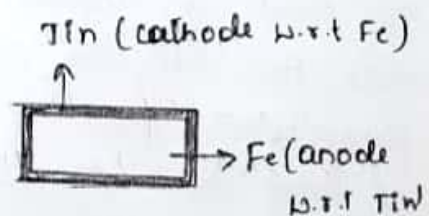 Tin (cathode w.r.t Fe)
Fe (anode
w.r.t Tin)